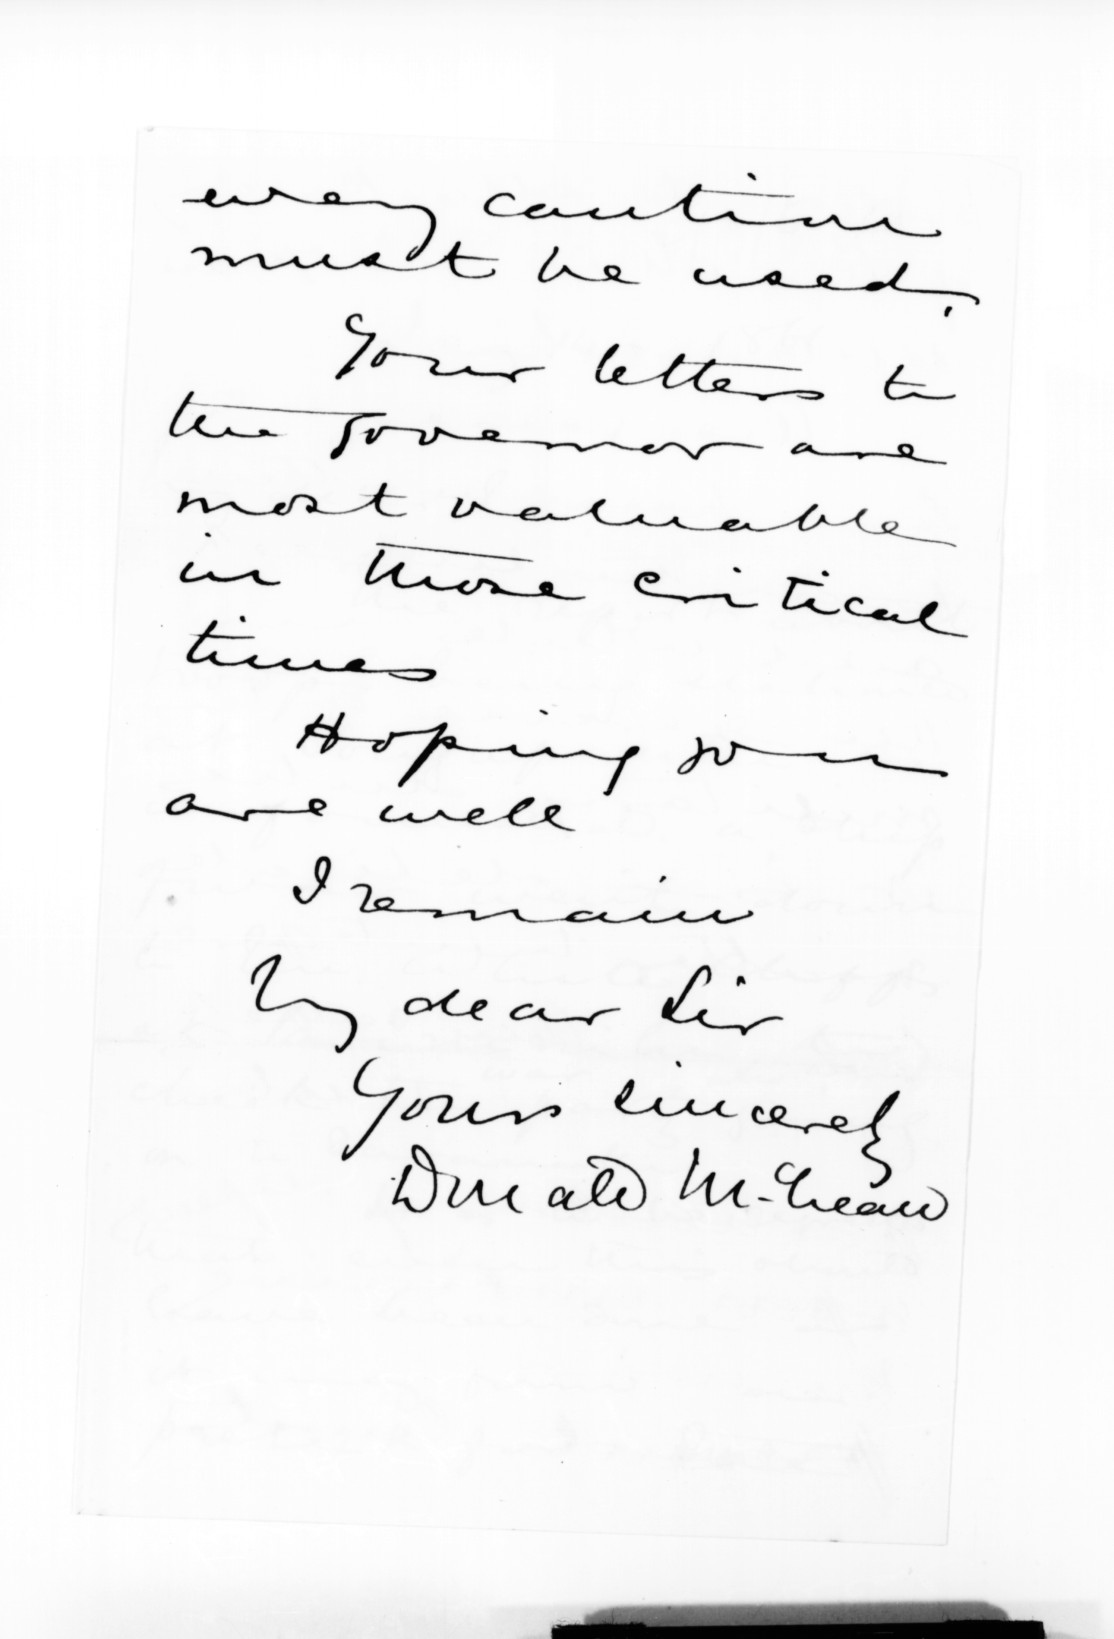 every caution
must be used,
Your letters to
the Governor are
most valuable
in those critical
times
Hoping you
are well
I remain
My dear Sir
Yours sincerely
Donald McLean